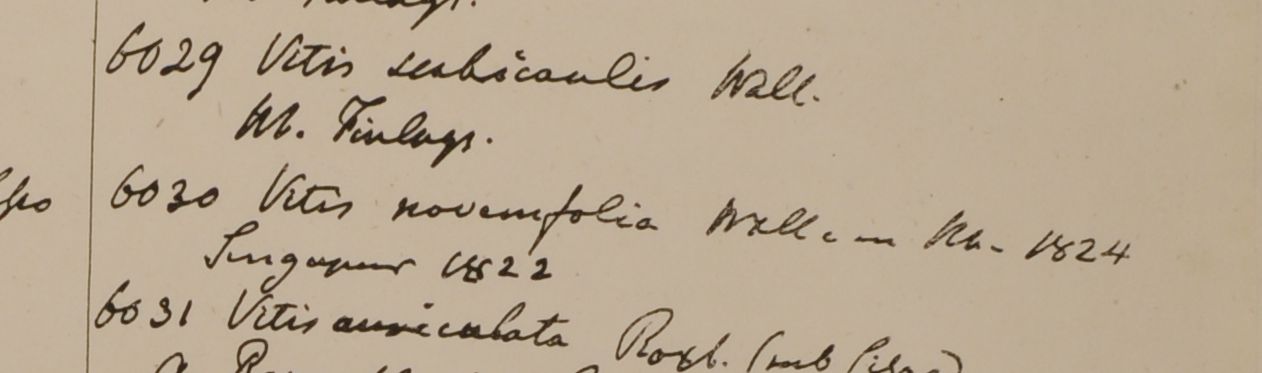 6029 Vitis scabicaulis Wall.
Hb. Finlays.
6030 Vitis novemfolia Wall. in Hb. 1824
Singapur 1822
6031 Vitis auriculata Roxb. (sub